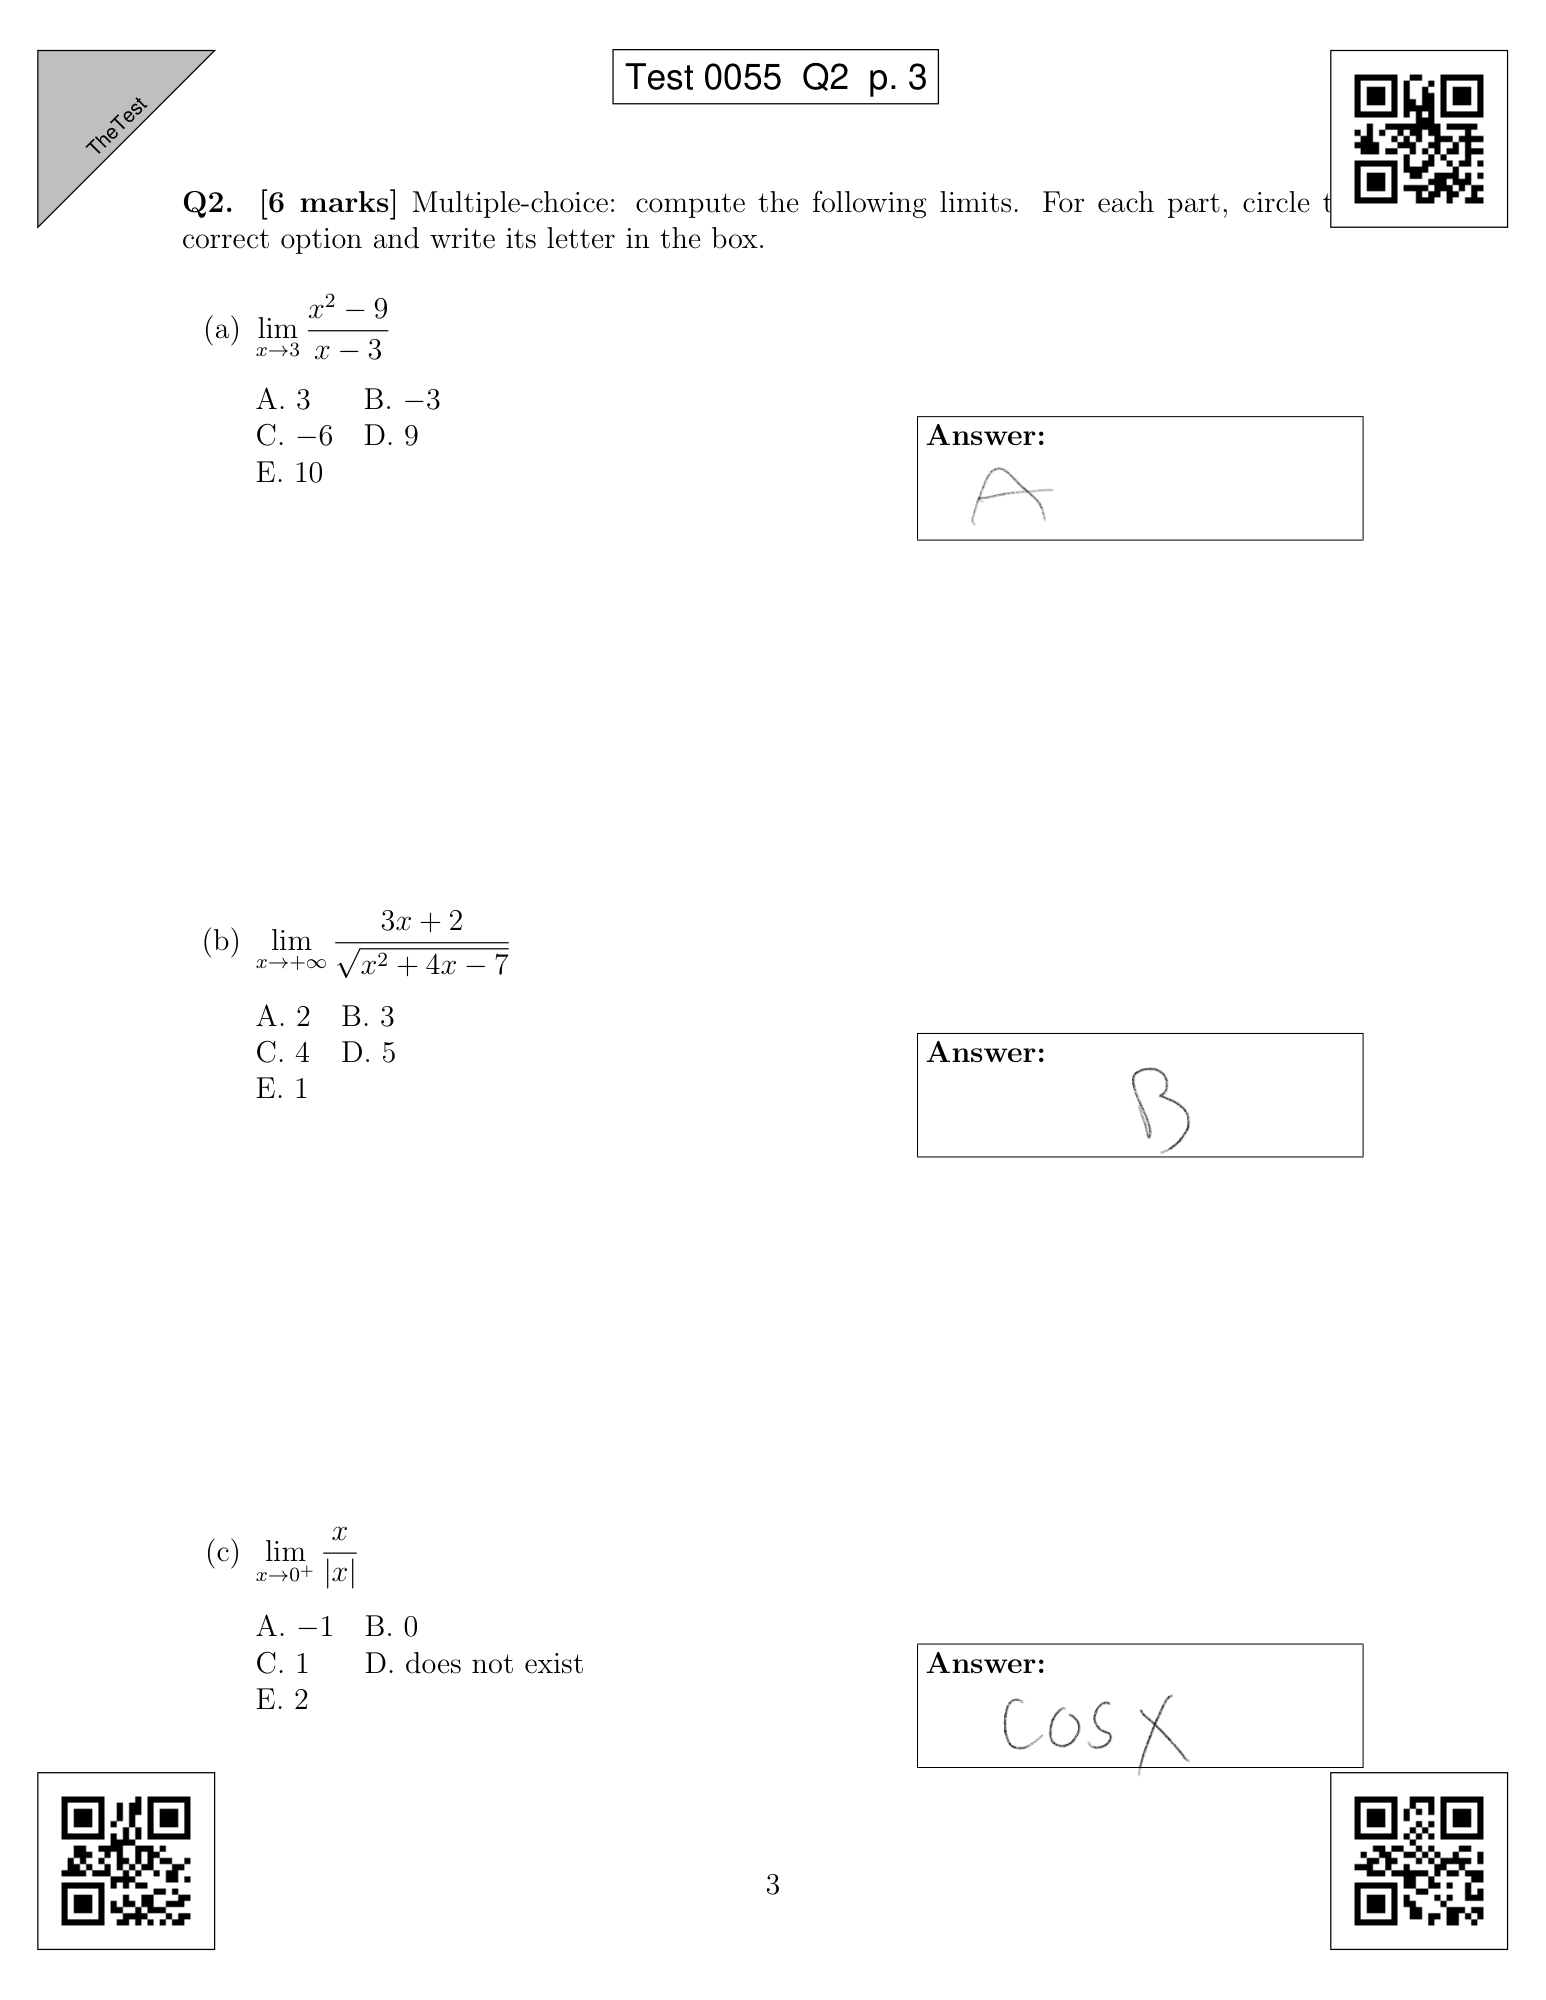 TheTest
Test 0055 Q2 p. 3
Q2. [6 marks] Multiple-choice: compute the following limits. For each part, circle t
correct option and write its letter in the box.
(a) lim x→3 (x² − 9)/(x − 3)
A. 3 B. −3
C. −6 D. 9
E. 10
Answer:
A
(b) lim x→+∞ (3x + 2)/√(x² + 4x − 7)
A. 2 B. 3
C. 4 D. 5
E. 1
Answer:
B
(c) lim x→0⁺ x/|x|
A. −1 B. 0
C. 1 D. does not exist
E. 2
Answer:
cos x
3